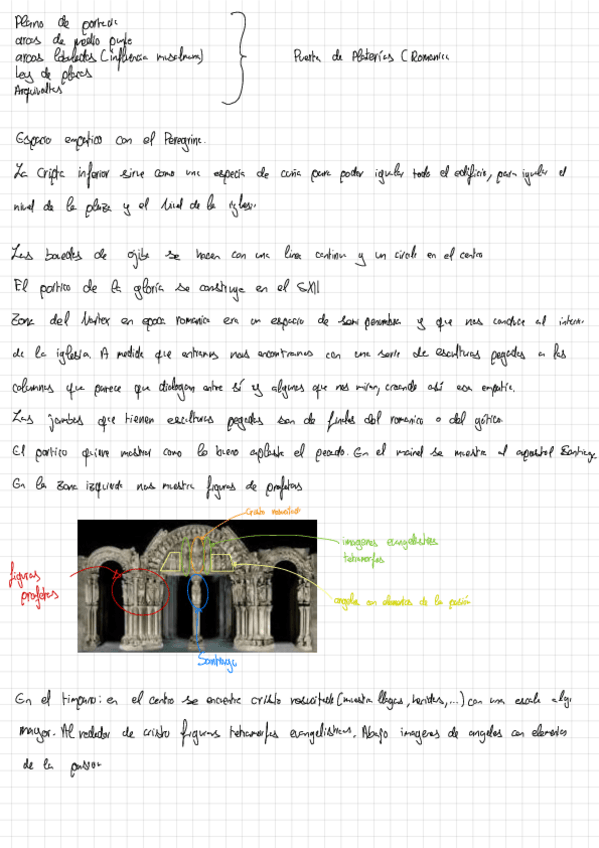 Plano de portada
arcos de medio punto
arcos lobulados (influencia musulmana)
Ley de placas
Arquivoltas
Puerta de Platerías (Romanica
Espacio empatico con el Peregrino.
La Cripta inferior sirve como una especia de cuña para poder igualar todo el edificio, para igualar el
nivel de la plaza y el nivel de la iglesia.
Las bovedas de ojiba se hacen con una linea continua y un circulo en el centro
El portico de la gloria se construye en el SXII
Zona del Nartex en epoca romanica era un espacio de semi penumbra y que nos conduce al interior
de la iglesia. A medida que entramos nos encontramos con una serie de esculturas pegadas a las
columnas que parece que dialogan entre sí y algunas que nos miran, creando así esa empatía.
Las jambas que tienen esculturas pegadas son de finales del romanico o del gótico.
El portico quiere mostrar como lo bueno aplasta el pecado. En el mainel se muestra al apostol Santiago.
En la zona izquierda nos muestra figuras de profetas
Cristo resucitado
imagenes evangelistas
tetramorfos
figuras
profetas
angeles con elementos de la pasión
Santiago
En el timpano: en el centro se encuentra cristo resucitado (muestra llagas, heridas, ...) con una escala algo
mayor. Al rededor de cristo figuras tetramorfas evangelisticas. Abajo imagenes de angeles con elementos
de la pasion